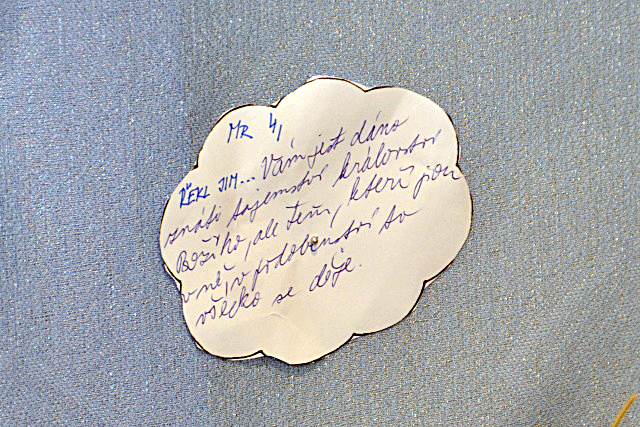 MR 4,
ŘEKL JIM... Vám jest dáno
znáti tajemství království
Božího, ale těm, kteří jsou
vně, v podobenství to
všecko se děje.